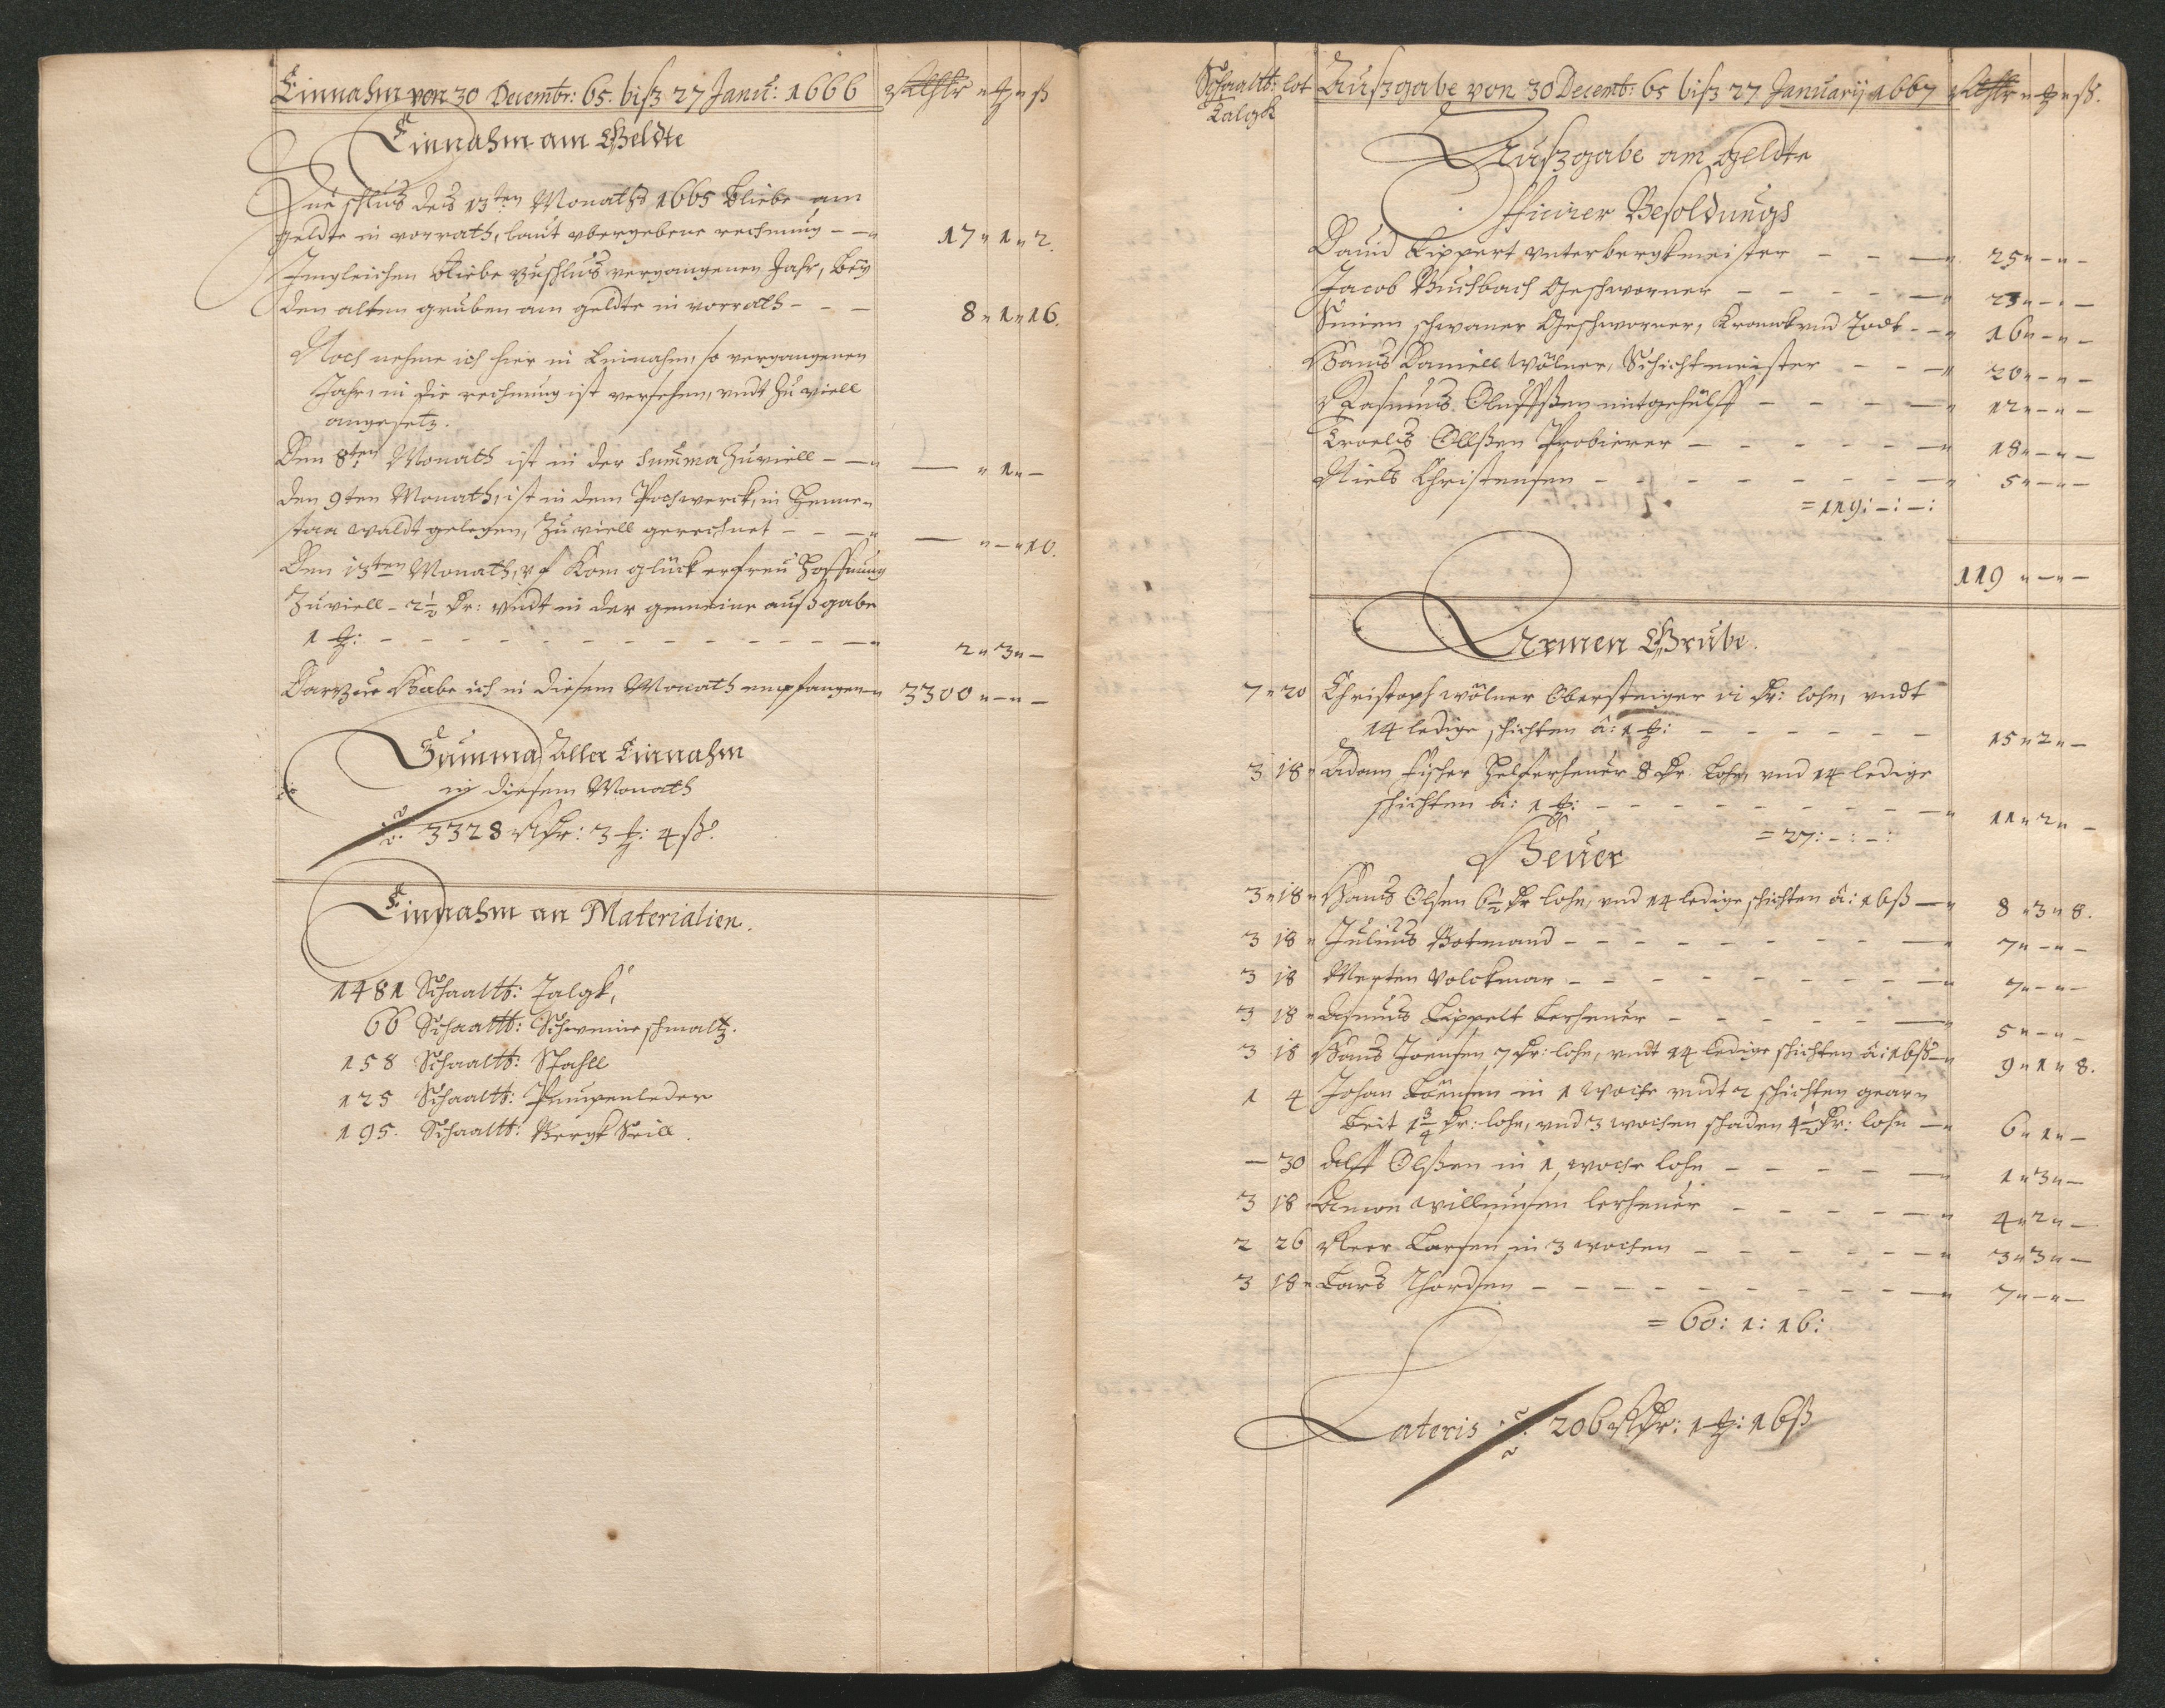 Einnahm von 30 Decembr: 65. biß 27 Janu: 1666 Rthlr " # " ß
Einnahm am Geldte
Zue schluß des 13ten Monaths 1665 bliebe am
geldte in vorrath, laut vbergebene rechnung - - " 17 " 1 " 2.
Jmgleichen bliebe zuschluß vergangenen Jahr, bey
den alten gruben am geldte in vorrath - - - 8 " 1 " 16.
Noch nehme ich hier in Einnahm, so vergangenen
Jahr, in die rechnung ist versehen, vndt zu viell
angesetz.
Den 8ten Monath ist in der Summa zuviell - - " — " 1 " -
den 9ten Monath, ist in dem Pochwerck, in Henne-
stan waldt gelegen, zuviell gerechnet - - - " — " - " 10.
Den 13ten Monath, vf Kom glück erfreu Hoffnung
zuviell - 2½ Dr: vndt in der gemeine außgabe
1 #: - - - - - - - - - - - - " 2 " 3 " -
Darzue Habe ich in diesem Monath empfangen " 3300 " - " -
Summa Aller Einnahm
in diesem Monath
3328 RDr: 3 #: 4 ß:
Einnahm an Materialien.
1481 Schaaltt: Talgk,
66 Schaaltt: Schweine schmaltz.
158 Schaaltt: Stahll
125 Schaaltt: Pumpenleder
195. Schaaltt: Bergk Seill.
Schaaltt: lot Außgabe von 30 Decemb: 65 biß 27 Januarij 1667 Rthlr " # " ß.
Talgk
Außgabe am geldte
Officirer Besoldungs
David Lippert vnterbergkmeister - - - " 25 " - " -
Jacob Buchbach Geschworner - - - - - 23 " - " -
Simien schwaner Geschworner, Kranck vnd Todt - - " 16 " - " -
Hans Daniell Wölner, Schichtmeister - - - " 20 " - " -
Rasmus Olufßen mitgehülff - - - - - " 12 " - " -
Troels Olßen Probierer - - - - - - " 18 " - " -
Niels Christensen - - - - - - - " 5 " - " -
= 119: - : - :
119 " - " -
Armen Grube.
7 " 20 Christoph wölner Obersteiger 11 Dr: lohn, vndt
14 ledige schichten â: 1 #: - - - - - - 15 " 2 " -
3 18 " Adam fischer Helferheuer 8 Dr: Lohn, vnd 14 ledige
schichten â: 1 #: - - - - - - - " 11 " 2 " -
= 27: - : - :
Heuer
3 " 18 " Hans Olsen 6½ Dr lohn, vnd 14 ledige schichten â: 16 ß - " 8 " 3 " 8.
3 18 " Julius Botmand - - - - - - - " 7 " - " -
3 18 Merten Volckmar - - - - - - - " 7 " - " -
3 18 " Asmus Lippelt Lerheuer - - - - - " 5 " - " -
3 18 Hans Joensen 7 Dr: lohn, vndt 14 ledige schichten â: 16 ß - " 9 " 1 " 8.
1 4 Johan Töensen in 1 woche vndt 2 schichten gear-
beit 1¾ Dr: lohn, vnd 3 wochen schaden 4½ Dr: lohn - " 6 " 1 " -
- 30 Olff Olßen in 1 woche lohn - - - - - 1 " 3 " -
3 18 " Amon Willumsen lerheuer - - - - - " 4 " 2 " -
2 26 Peer Larsen in 3 wochen - - - - - " 3 " 3 " -
3 18 " Lars Thordsen - - - - - - - - " 7 " - " -
= 60: 1: 16:
Lateris 206 RDr: 1 #: 16 ß